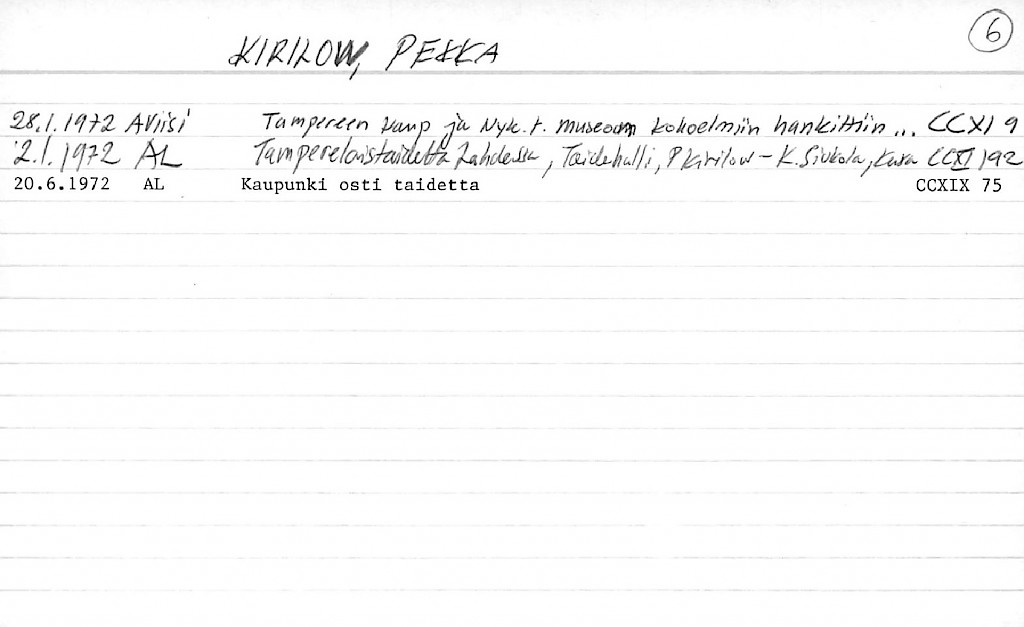 6
KIRILOW, PEKKA
28.1.1972 AViisi Tampereen kaup ja Nyk. t. museoon kokoelmiin hankittiin ... CCXI 9
2.1.1972 AL Tamperelaistaidetta Lahdessa, Taidehalli, P Kirilow - K. Sivkola, CCXI 192
20.6.1972 AL Kaupunki osti taidetta CCXIX 75